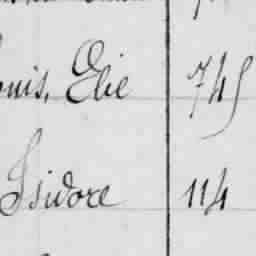 ouis, Elie 745
Isidore 114